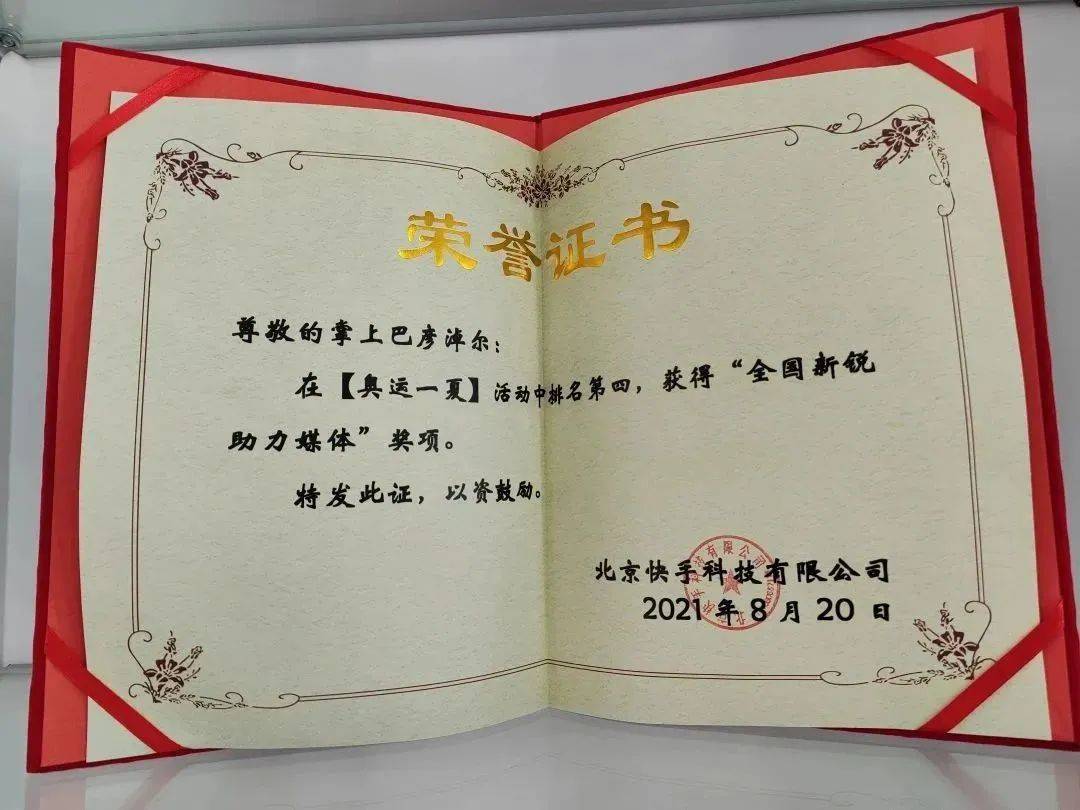 荣誉证书
尊敬的掌上巴彦淖尔：
在【奥运一夏】活动中排名第四，获得“全国新锐
助力媒体”奖项。
特发此证，以资鼓励。
北京快手科技有限公司
2021 年 8 月 20 日